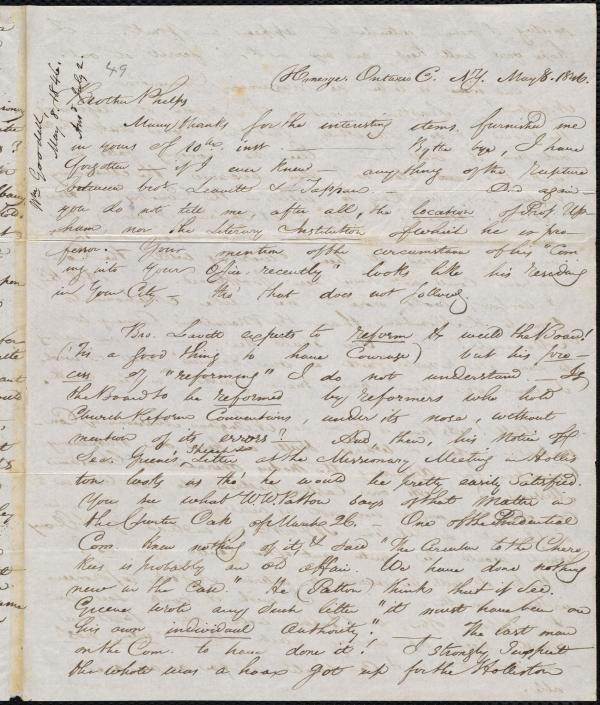 49
Wm Goodell,
May. 8. 1846.
Ans'd July 2.
Honeoye, Ontario C. N.Y. May 8. 1846.
Brother Phelps
Many thanks for the interesting items furnished me
in yours of 10th. inst. — By the bye, I have
forgotten — if I ever knew — anything of the rupture
between bro's Leavitt & Tappan. — And again —
you do not tell me, after all, the location of Prof. Up-
ham nor the Literary Institution of which he is pro-
fessor. — Your mention of the circumstance of his "Com-
ing into Your Office recently" looks like his residing
in Your City — tho' that does not follow.
Bro. Leavitt expects to reform & unite the Board!
('Tis a good thing to have Courage) but his pro-
cess of "reforming" I do not understand — Is
the Board to be reformed by reformers who hold
Church Reform Conventions, under its nose, without
mention of its errors? And then, his Notice of
Sec. Greene's Letter at the Missionary Meeting in Hollis-
ton looks as tho' he would be pretty easily satisfied.
You see what W. W. Patton says of that matter in
the Charter Oak of March 26. — One of the Prudential
Com. knew nothing of it, & said "The Circular to the Chero
kees is probably an old affair. We have done nothing
new in the case." He (Patton) thinks that if Sec.
Greene wrote any such letter "it must have been on
his own individual authority." — The last man
on the Com. to have done it! I strongly suspect
the whole was a hoax got up for the Holliston